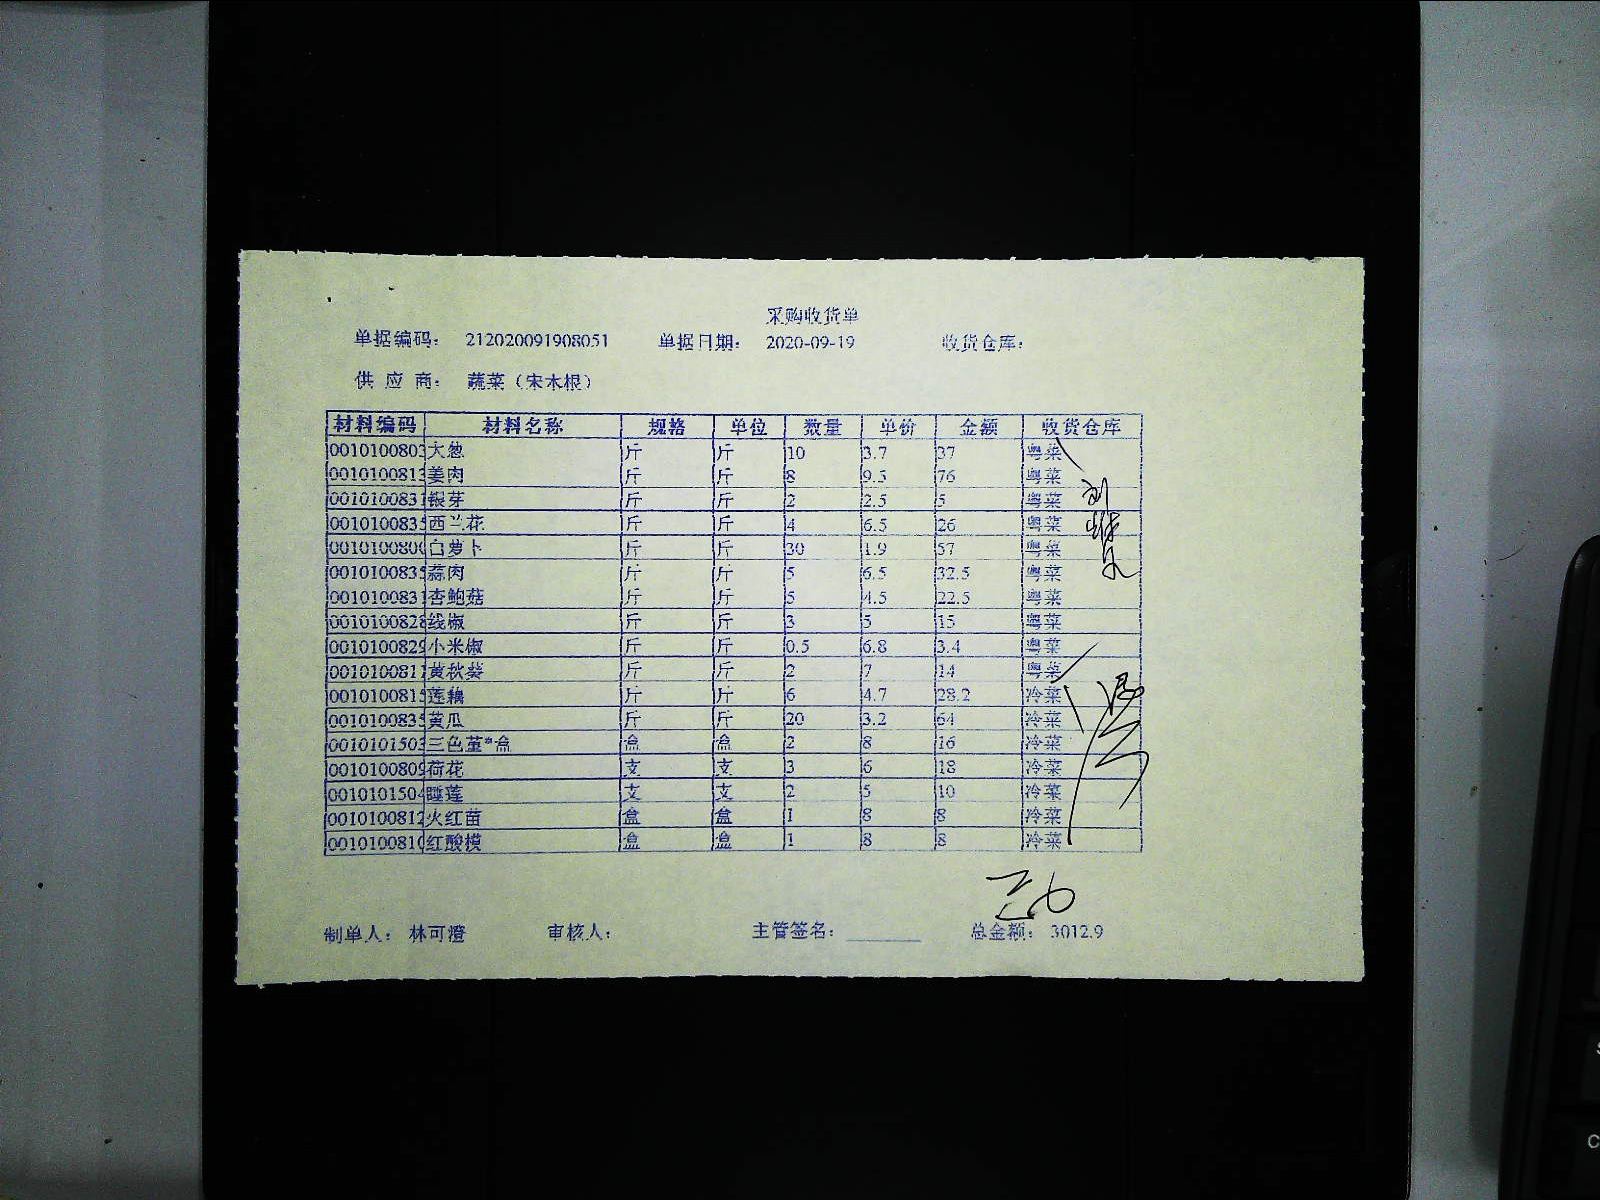 采购收货单
单据编码： 212020091908051 单据日期： 2020-09-19 收货仓库：
供 应 商： 蔬菜（宋木根）
材料编码 材料名称 规格 单位 数量 单价 金额 收货仓库
0010100803 大葱 斤 斤 10 3.7 37 粤菜
0010100813 姜肉 斤 斤 8 9.5 76 粤菜
0010100831 银芽 斤 斤 2 2.5 5 粤菜
0010100835 西兰花 斤 斤 4 6.5 26 粤菜
0010100800 白萝卜 斤 斤 30 1.9 57 粤菜
0010100835 蒜肉 斤 斤 5 6.5 32.5 粤菜
0010100831 杏鲍菇 斤 斤 5 4.5 22.5 粤菜
0010100828 线椒 斤 斤 3 5 15 粤菜
0010100829 小米椒 斤 斤 0.5 6.8 3.4 粤菜
0010100811 黄秋葵 斤 斤 2 7 14 粤菜
0010100815 莲藕 斤 斤 6 4.7 28.2 冷菜
0010100835 黄瓜 斤 斤 20 3.2 64 冷菜
0010101503 三色堇*盒 盒 盒 2 8 16 冷菜
0010100809 荷花 支 支 3 6 18 冷菜
0010101504 睡莲 支 支 2 5 10 冷菜
0010100812 火红苗 盒 盒 1 8 8 冷菜
0010100810 红酸模 盒 盒 1 8 8 冷菜
制单人： 林可澄 审核人： 主管签名： 总金额： 3012.9